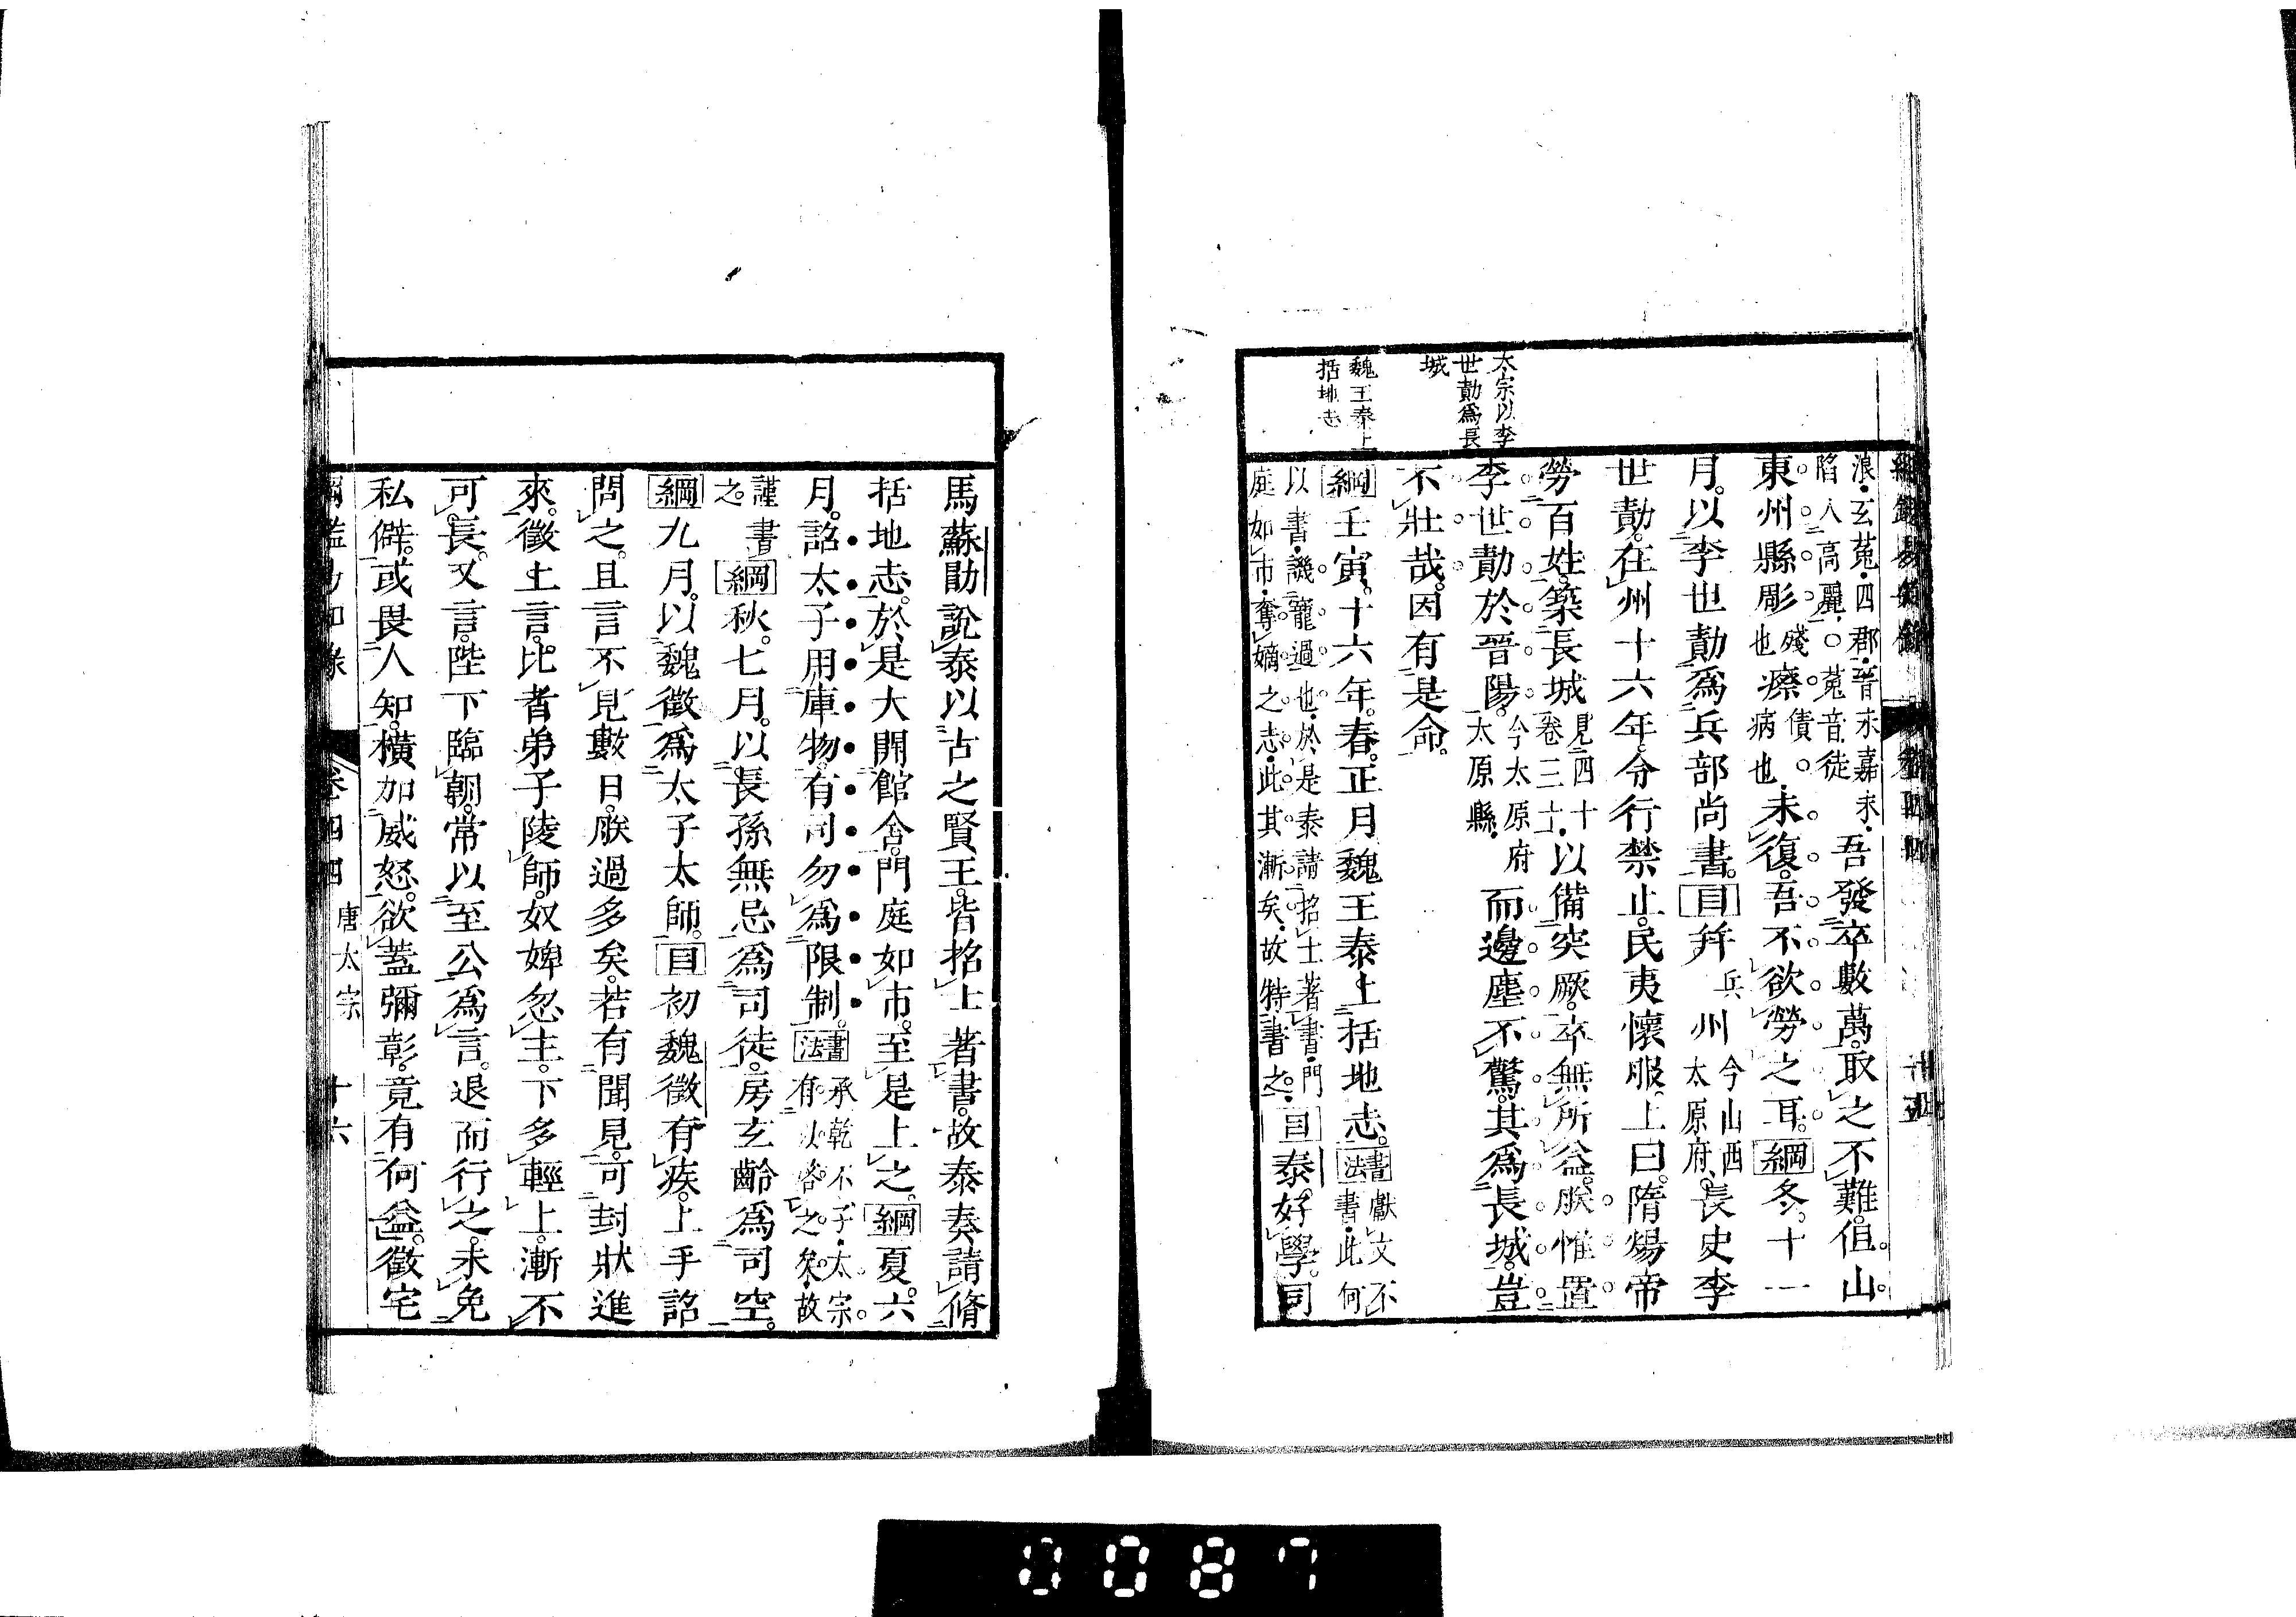 太宗以李
世勣爲長
城
魏王泰上
括地志
浪玄菟四郡晉永嘉末
陷入高麗○菟音徒
吾發卒數萬取之不難但山
東州縣彫殘也瘵債病也未復吾不欲勞之耳綱冬十一
月以李世勣爲兵部尚書目幷兵州今山西太原府長史李
世勣在州十六年令行禁止民夷懷服上曰隋煬帝
勞百姓築長城見四十卷三十以備突厥卒無所益朕惟置
李世勣於晉陽今太原府太原縣而邊塵不驚其爲長城豈
不壯哉因有是命
綱壬寅十六年春正月魏王泰上括地志書法獻文不書此何
以書譏寵過也於是泰請招士著書門
庭如市奪嫡之志此其漸矣故特書之
目泰好學司
馬蘇勖說泰以古之賢王皆招士著書故泰奏請脩
括地志於是大開館舍門庭如市至是上之綱夏六
月詔太子用庫物有司勿爲限制書法承乾不子太宗有以啓之矣故
謹書之
綱秋七月以長孫無忌爲司徒房玄齡爲司空
綱九月以魏徵爲太子太師目初魏徵有疾上手詔
問之且言不見數日朕過多矣若有聞見可封狀進
來徵上言比者弟子陵師奴婢忽主下多輕上漸不
可長又言陛下臨朝常以至公爲言退而行之未免
私僻或畏人知橫加威怒欲蓋彌彰竟有何益徵宅
卷四四 唐太宗 十六
0087